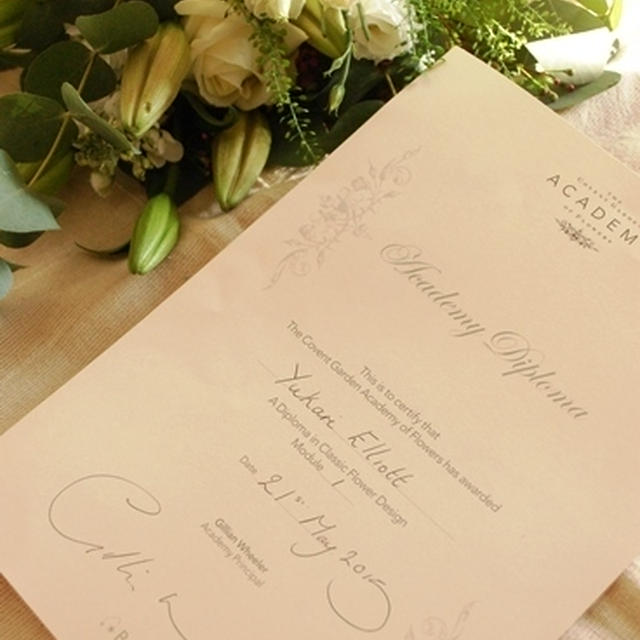 ACADEM
Academy Diploma
This is to certify that
The Covent Garden Academy of Flowers has awarded
Yukari Elliott
A Diploma in Classic Flower Design
Module 1
Date 21st May 2015
Gillian Wheeler
Academy Principal